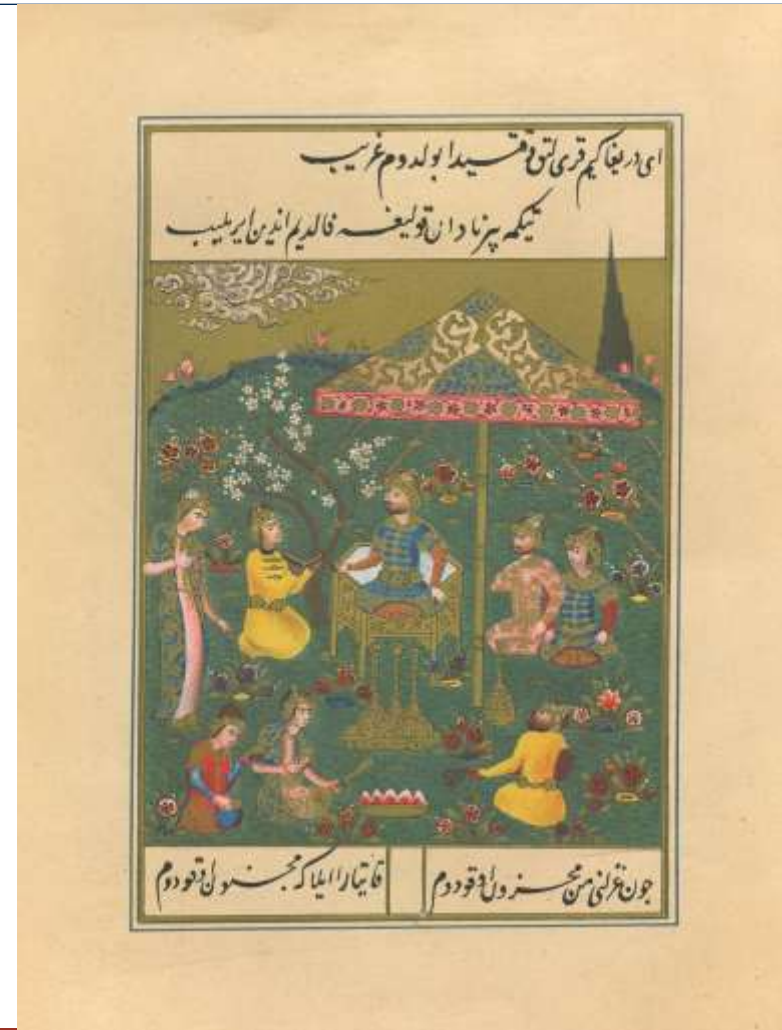 ای دریغا کیم قری لتق وقتیدا بولدوم غریب
تیکمه بیر نادان قولیغه قالدیم اندین ایریلیب
جون غزلنی من محزون اوقودوم
ایلاکه مجنون اوقودوم